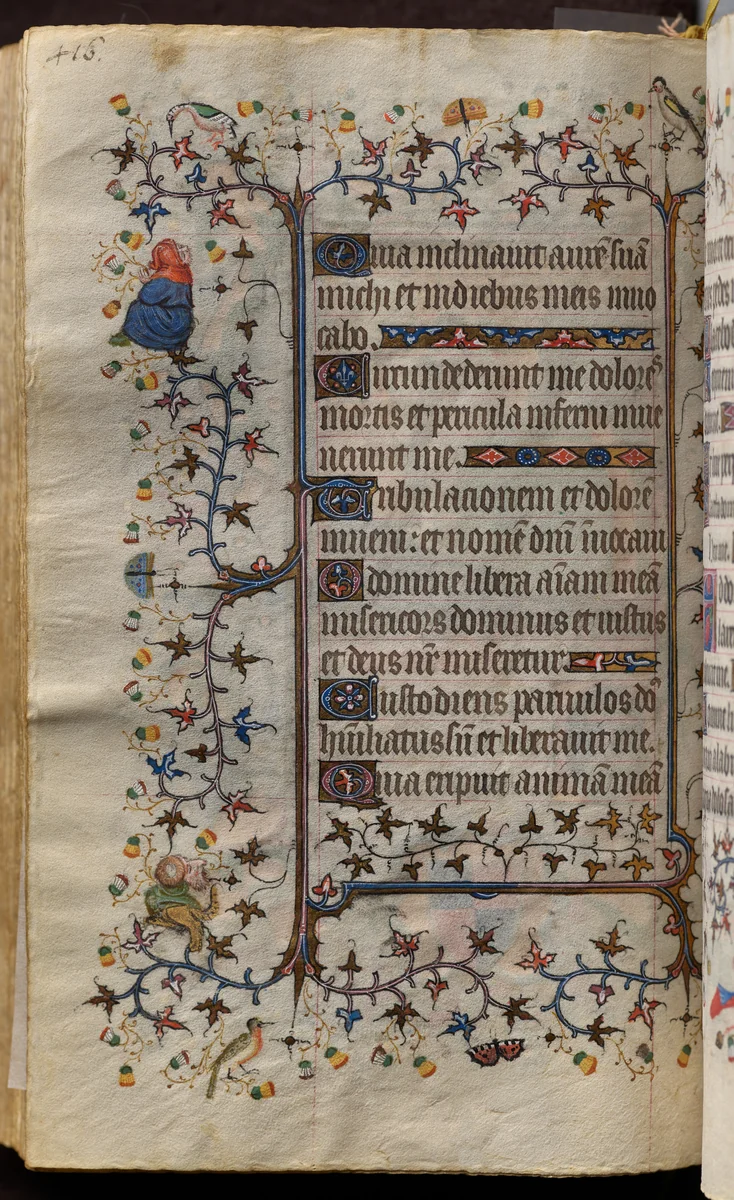 416.
Quia inclinauit aurē suā
michi et in diebus meis inuo
cabo.
Circumdederunt me dolores
mortis et pericula inferni inue
nerunt me.
Tribulacionem et dolorē
inueni: et nomē dn̄i inuocaui
O domine libera aīam meā
misericors dominus et iustus
et deus nr̄ miseretur.
Custodiens paruulos do
hūiliatus sū et liberauit me.
Quia eripuit animā meā